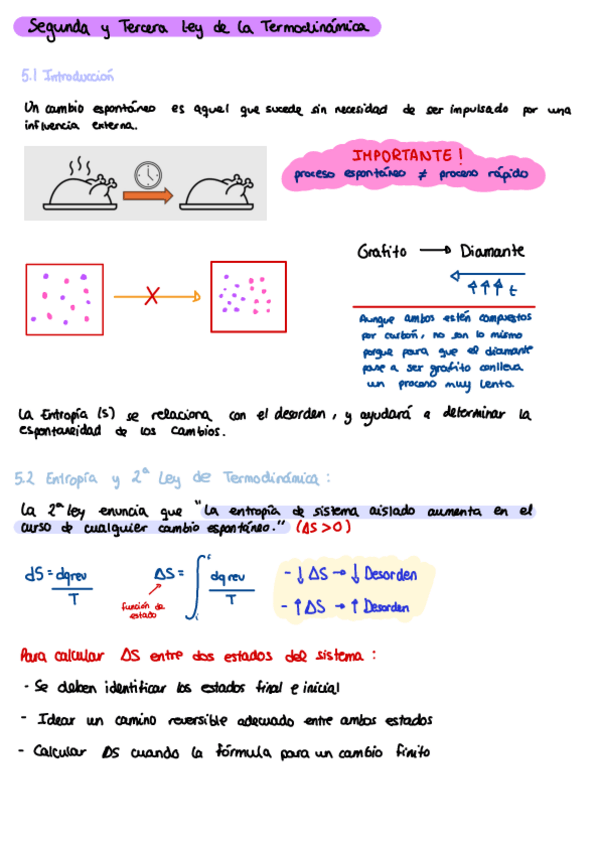 Segunda y Tercera Ley de la Termodinámica
5.1 Introducción
Un cambio espontáneo es aquel que sucede sin necesidad de ser impulsado por una
influencia externa.
IMPORTANTE!
proceso espontáneo ≠ proceso rápido
Grafito → Diamante
← ↑↑↑ t
X
Aunque ambos estén compuestos
por carbón, no son lo mismo
porque para que el diamante
pase a ser grafito conlleva
un proceso muy lento.
La Entropía (S) se relaciona con el desorden, y ayudará a determinar la
espontaneidad de los cambios.
5.2 Entropía y 2ª Ley de Termodinámica:
La 2ª Ley enuncia que "La entropía de sistema aislado aumenta en el
curso de cualquier cambio espontáneo." (ΔS > 0)
dS = dqrev / T
ΔS = ∫ᵢᶠ dqrev / T
función de
estado
- ↓ ΔS → ↓ Desorden
- ↑ ΔS → ↑ Desorden
Para calcular ΔS entre dos estados del sistema:
- Se deben identificar los estados final e inicial
- Idear un camino reversible adecuado entre ambos estados
- Calcular ΔS cuando la fórmula para un cambio finito